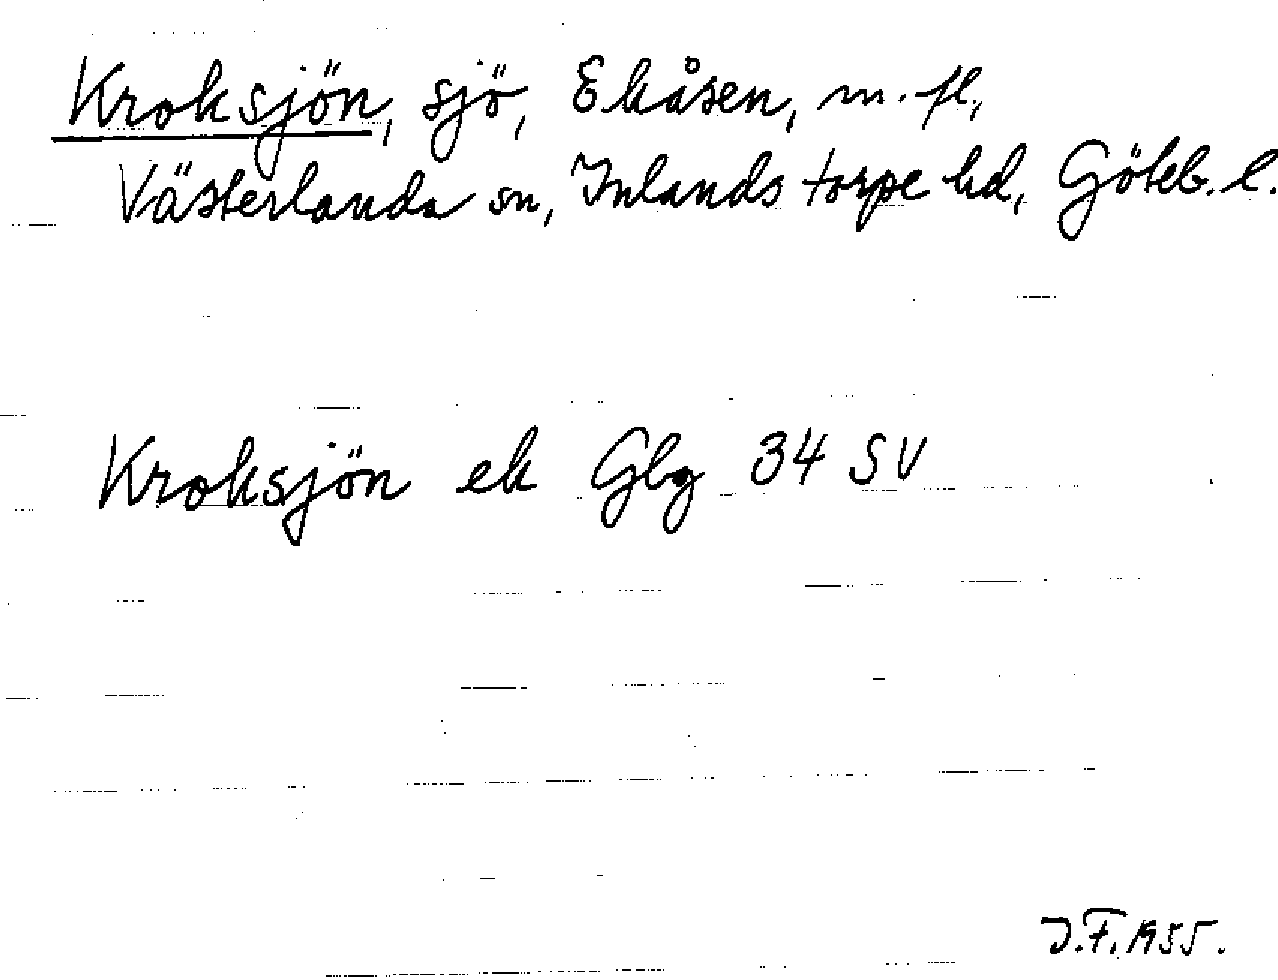 Kroksjön, sjö, Ekåsen, m.fl.,
Västerlanda sn, Inlands torpe hd, Göteb. l.
Kroksjön ek Gbg 34 SV
J.F. 1955.